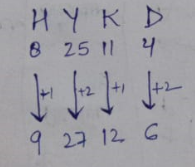 H Y K D
8 25 11 4
+1 +2 +1 +2
9 27 12 6